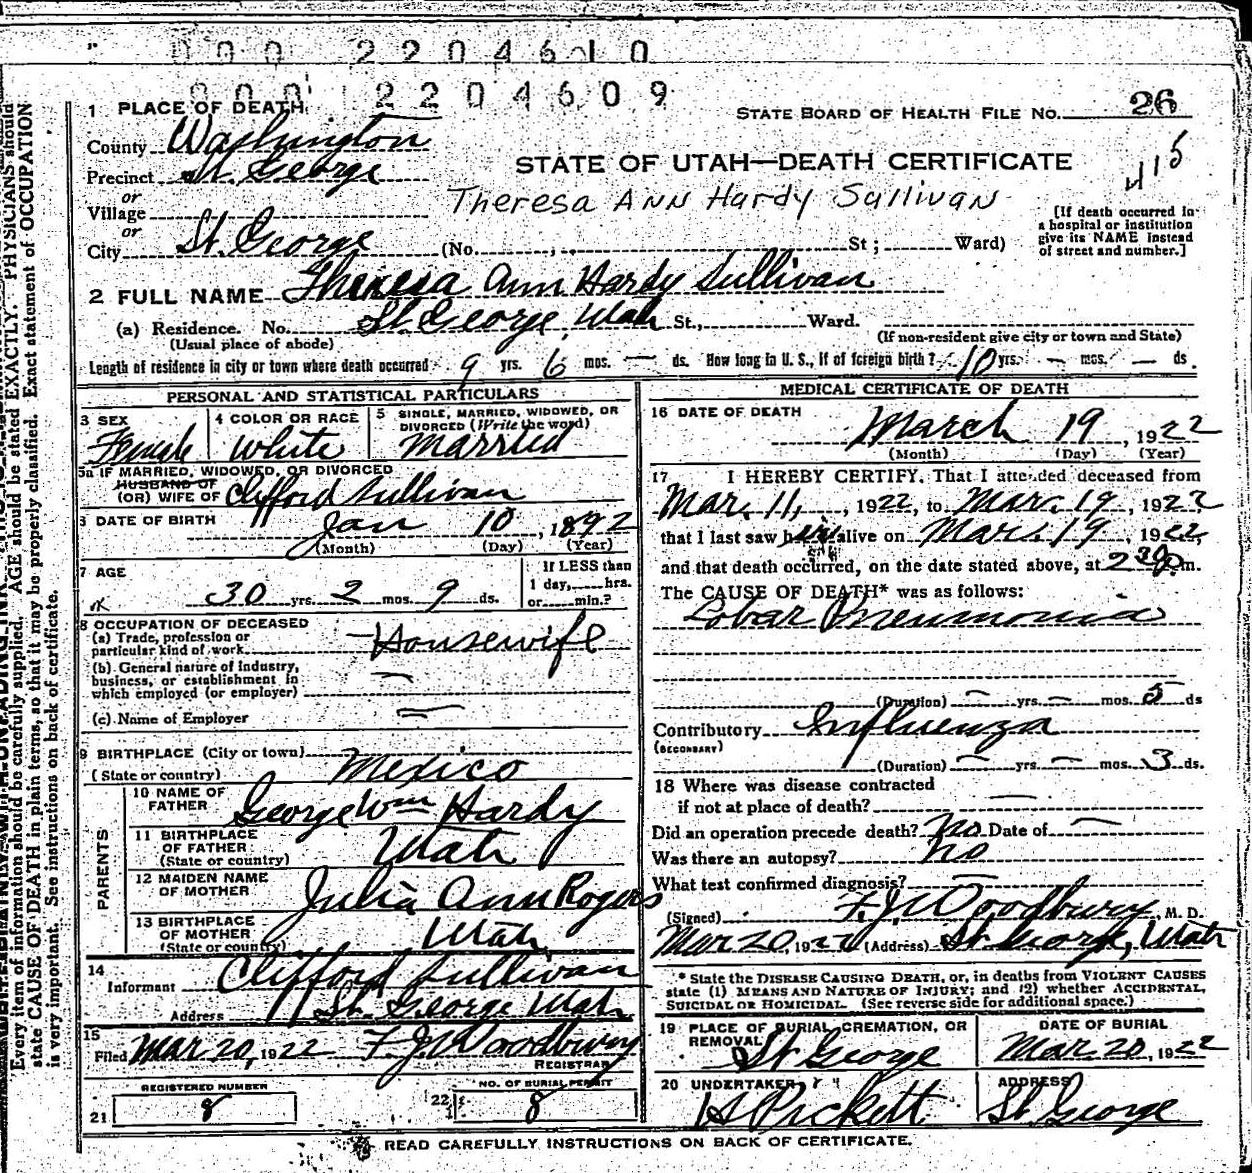 000 2204610
000 2204609
1 PLACE OF DEATH
STATE BOARD OF HEALTH FILE NO. 26
County Washington
Precinct St. George
STATE OF UTAH—DEATH CERTIFICATE
415
or
Village
Theresa Ann Hardy Sullivan
or
City St. George (No. St; Ward)
[If death occurred in
a hospital or institution
give its NAME instead
of street and number.]
2 FULL NAME Theresa Ann Hardy Sullivan
(a) Residence. No. St. George Utah St., Ward.
(Usual place of abode) (If non-resident give city or town and State)
Length of residence in city or town where death occurred 9 yrs. 6 mos. — ds. How long in U. S., if of foreign birth? 10 yrs. — mos. — ds.
PERSONAL AND STATISTICAL PARTICULARS
3 SEX Female
4 COLOR OR RACE White
5 SINGLE, MARRIED, WIDOWED, OR
DIVORCED (Write the word)
Married
5a IF MARRIED, WIDOWED, OR DIVORCED
HUSBAND OF
(OR) WIFE OF Clifford Sullivan
6 DATE OF BIRTH Jan 10, 1892
(Month) (Day) (Year)
7 AGE
30 yrs. 2 mos. 9 ds.
If LESS than
1 day, hrs.
or min.?
8 OCCUPATION OF DECEASED
(a) Trade, profession or
particular kind of work Housewife
(b) General nature of industry,
business, or establishment in
which employed (or employer) —
(c) Name of Employer —
9 BIRTHPLACE (City or town)
(State or country) Mexico
PARENTS
10 NAME OF
FATHER George Wm Hardy
11 BIRTHPLACE
OF FATHER
(State or country) Utah
12 MAIDEN NAME
OF MOTHER Julia Ann Rogers
13 BIRTHPLACE
OF MOTHER
(State or country) Utah
14
Informant Clifford Sullivan
Address St. George Utah
15
Filed Mar 20, 1922 F. J. Woodbury
REGISTRAR
REGISTERED NUMBER
21 8
NO. OF BURIAL PERMIT
22 8
MEDICAL CERTIFICATE OF DEATH
16 DATE OF DEATH
March 19, 1922
(Month) (Day) (Year)
17 I HEREBY CERTIFY, That I attended deceased from
Mar. 11, 1922, to Mar. 19, 1922
that I last saw her alive on Mar. 19, 1922
and that death occurred, on the date stated above, at 2 30 p.m.
The CAUSE OF DEATH* was as follows:
Lobar Pneumonia
(Duration) — yrs. — mos. 5 ds
Contributory Influenza
(SECONDARY)
(Duration) — yrs. — mos. 3 ds.
18 Where was disease contracted
if not at place of death? —
Did an operation precede death? No Date of —
Was there an autopsy? no
What test confirmed diagnosis? —
(Signed) F. J. Woodbury, M. D.
Mar 20, 1922 (Address) St. George, Utah
* State the DISEASE CAUSING DEATH, or, in deaths from VIOLENT CAUSES
state (1) MEANS AND NATURE OF INJURY; and (2) whether ACCIDENTAL,
SUICIDAL OR HOMICIDAL. (See reverse side for additional space.)
19 PLACE OF BURIAL, CREMATION, OR
REMOVAL St. George
DATE OF BURIAL
Mar. 20, 1922
20 UNDERTAKER
Pickett
ADDRESS
St. George
READ CAREFULLY INSTRUCTIONS ON BACK OF CERTIFICATE.
Every item of information should be carefully supplied. AGE should be stated EXACTLY. PHYSICIANS should
state CAUSE OF DEATH in plain terms, so that it may be properly classified. Exact statement of OCCUPATION
is very important. See instructions on back of certificate.